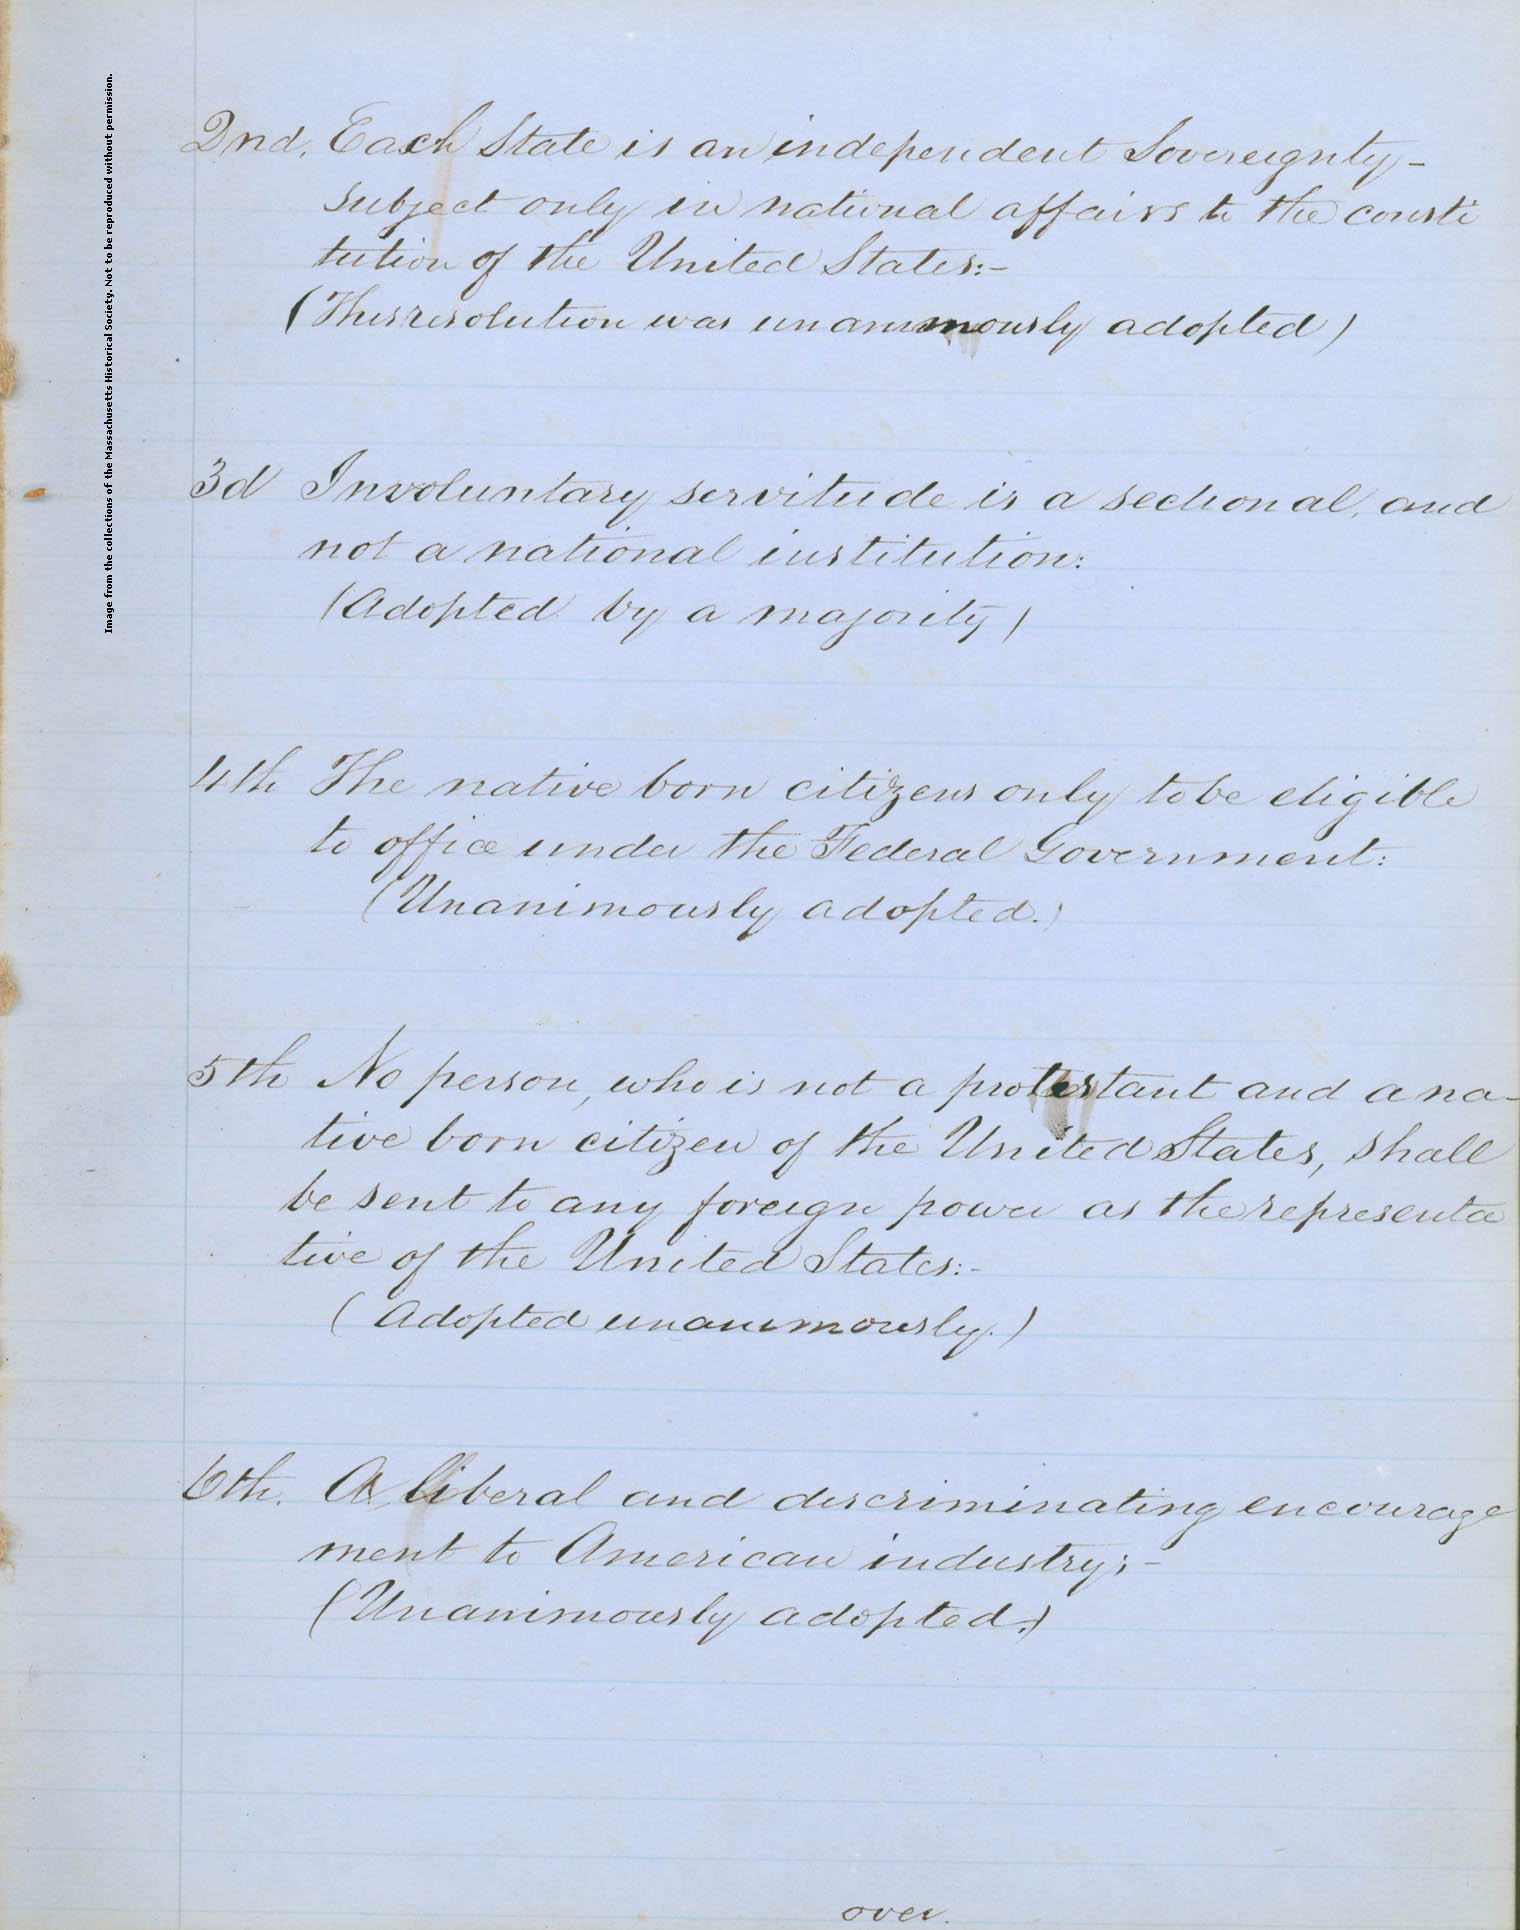 Image from the collections of the Massachusetts Historical Society. Not to be reproduced without permission.
2nd. Each State is an independent Sovereignty-
subject only in national affairs to the consti
tution of the United States:-
(This resolution was unanimously adopted)
3d Involuntary servitude is a sectional, and
not a national institution:
(Adopted by a majority)
4th The native born citizens only to be eligible
to office under the Federal Government:
(Unanimously adopted.)
5th No person, who is not a protestant and a na-
tive born citizen of the United States, shall
be sent to any foreign power as the representa
tive of the United States:-
(Adopted unanimously.)
6th. A liberal and discriminating encourage
ment to American industry;-
(Unanimously adopted.)
over.